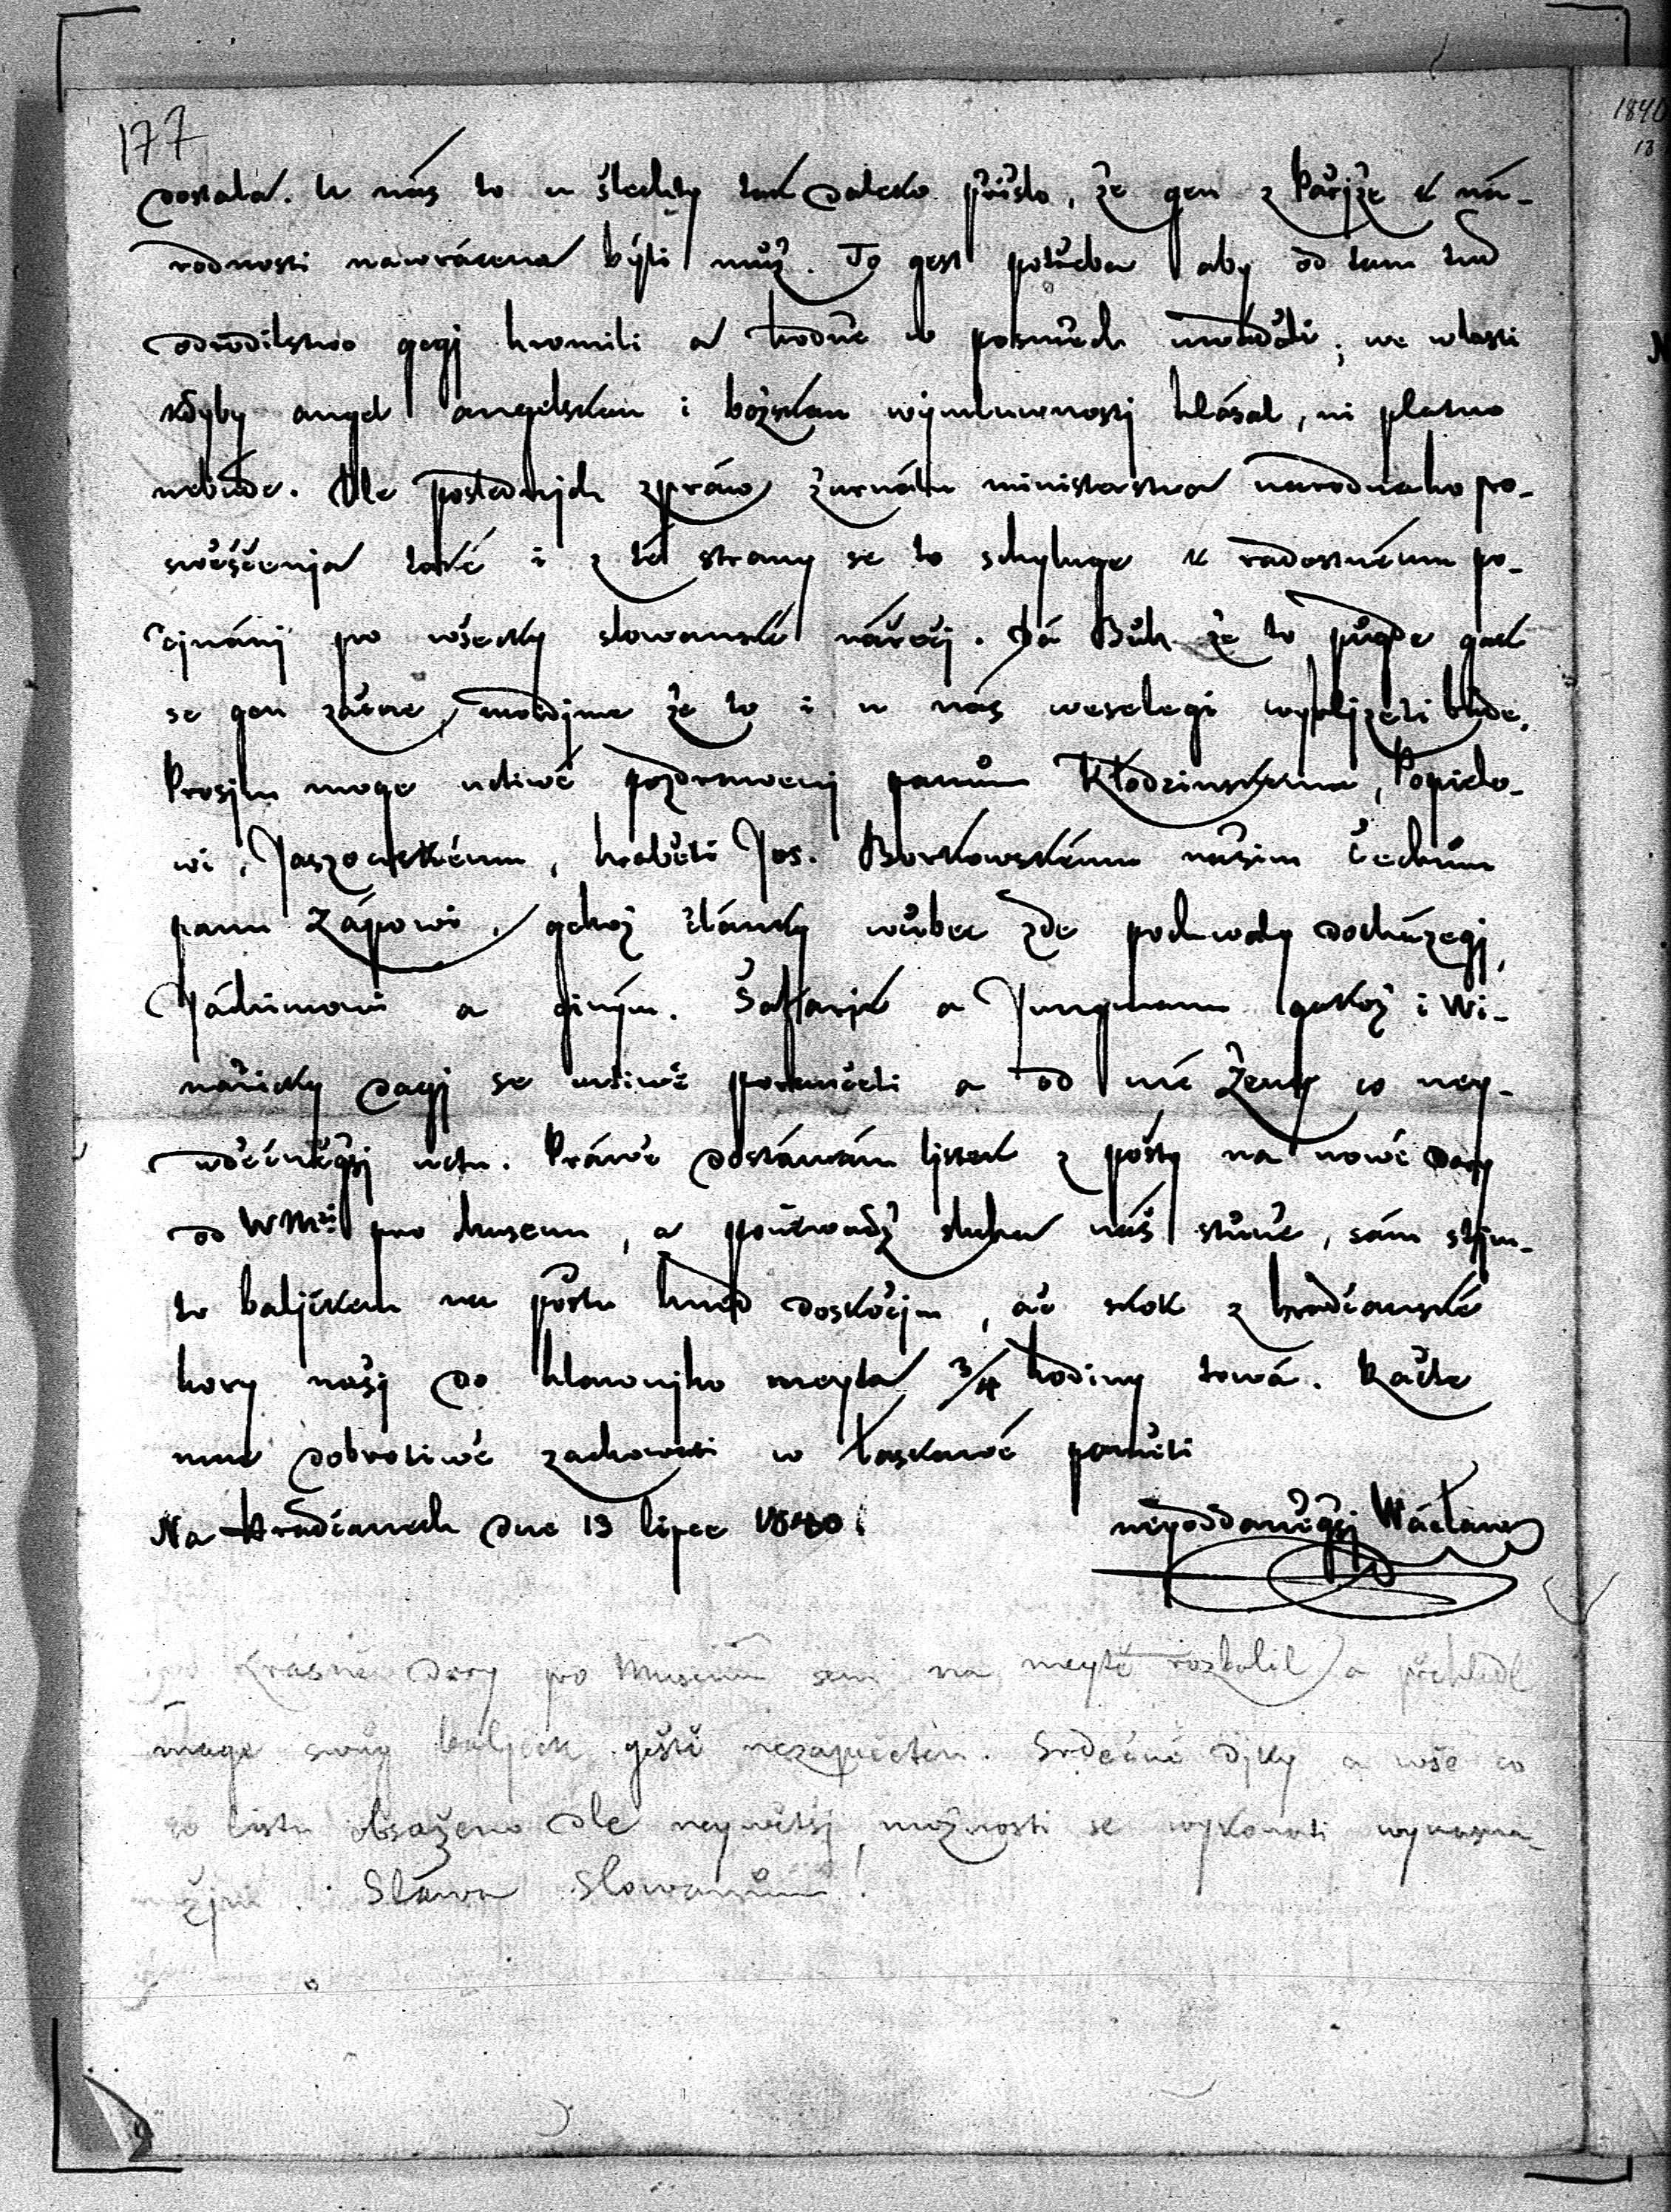 177
dostala. U nás to u šlechty tak daleko přišlo, že gen z Pařjže k ná-
rodnosti nawrácena býti můž. To gest potřeba aby od tam tud
odrodilstwo gegj hromili a hodně w posměch uwáděli; we wlasti
kdyby angel angelskau i božskau weymluwnostj hlásal, nic platno
nebude. Dle poslednjch zpráw žurnálu ministerstwa narodnaho pro-
swěščenja také i z té strany se to schyluge k radostnému po-
čjnánj pro wšecky slowanské nářečj. Dá Bůh že to půgde gak
se gen začne, uwidjme že to i u nás weselegi wyhljžeti bude.
Prosjm moge uctiwé pozdrawenj panům Kłodzinskému, Popielo-
wi, Jaszowskému, hraběti Jos. Borkowskému našim Čechům
panu Zápowi, gehož články wůbec zde pochwaly docházegj,
Jáchimowi a giným. Šafařjk a Jungmann gakož i Wi-
nařický dagj se uctiwě poručeti a od mé Ženy co ney-
wděčněgšj uctu. Práwě dostáwám ljstek z pošty na nowé dary
od WMti pro Museum, a poněwadž sluha náš stůně, sám s tjm-
to baljčkem na poštu hned doskočjm, ač skok z hradčanské
hory našj do hlawnjho meyta 3/4 hodiny trwá. Račte
mne dobrotiwě zachowati w łaskawé paměti
Na Hradčanech dne 13 lipce 1840.
neyoddaněgšj Wácław
Krásné dary pro Museum sem na meytě rozbalil a přehlédl
mage swůg baljček geště nezapečetěn. Srdečné djky a wše co
w listu obsaženo dle neywětšj možnosti se wykonati wynasna-
žjm. Sláwa Slowanům!
1840
13